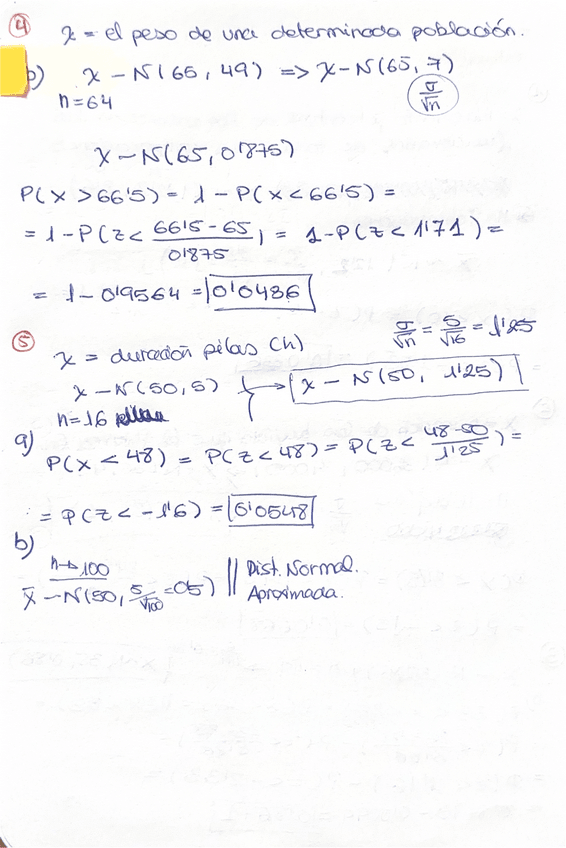 ④ X = el peso de una determinada población.
b) X - N(65, 49) => X - N(65, 7)
n = 64
σ/√n
X - N(65, 0'875)
P(X > 66'5) = 1 - P(X < 66'5) =
= 1 - P(Z < (66'5 - 65)/0'875) = 1 - P(Z < 1'71) =
= 1 - 0'9564 = 0'0436
⑤ X = duración pilas (h)
σ/√n = 5/√16 = 1'25
X - N(50, 5) → X - N(50, 1'25)
n = 16
a)
P(X < 48) = P(Z < 48) = P(Z < (48-50)/1'25) =
= P(Z < -1'6) = 0'0548
b)
n → 100
X̄ - N(50, 5/√100 = 05) || Dist. Normal.
Aproximada.